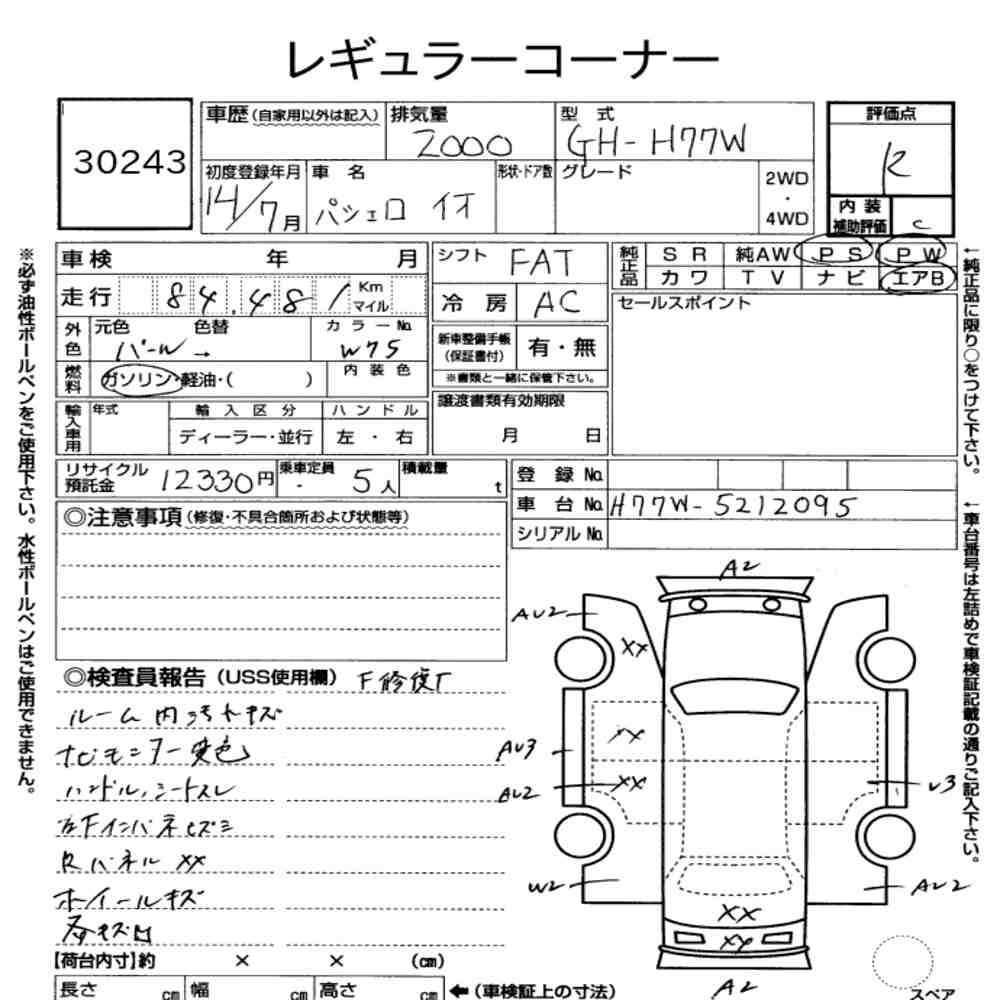 レギュラーコーナー
30243
車歴(自家用以外は記入)
排気量
2000
型 式
GH-H77W
評価点
R
初度登録年月
14/7月
車 名
パジェロ イオ
形状・ドア数
グレード
2WD
・
4WD
内 装
補助評価
C
※必ず油性ボールペンをご使用下さい。水性ボールペンはご使用できません。
車検 年 月
走行 84,481 Km
マイル
外色
元色 色替
パール→
カラーNo.
W75
燃料
ガソリン・軽油・( )
内装色
輸入車用
年式
輸入区分
ディーラー・並行
ハンドル
左・右
シフト FAT
冷房 AC
新車整備手帳
(保証書付)
有・無
※書類と一緒に保管下さい。
譲渡書類有効期限
月 日
純正品
SR 純AW PS PW
カワ TV ナビ エアB
セールスポイント
←純正品に限り○をつけて下さい。
リサイクル
預託金
12330円
乗車定員
5人
積載量
t
登録No.
車台No. H77W-5212095
シリアルNo.
←車台番号は左詰めで車検証記載の通りご記入下さい。
◎注意事項(修復・不具合箇所および状態等)
◎検査員報告(USS使用欄)
ルーム内汚レキズ
ナビモニター変色
ハンドル,シートスレ
Rパネル XX
ホイールキズ
A2
AU2
XX
XX
AU3
AU2
XX
U3
W2
AU2
XX
XY
A2
【荷台内寸】約 × × (cm)
長さ cm 幅 cm 高さ cm ←(車検証上の寸法)
スペア